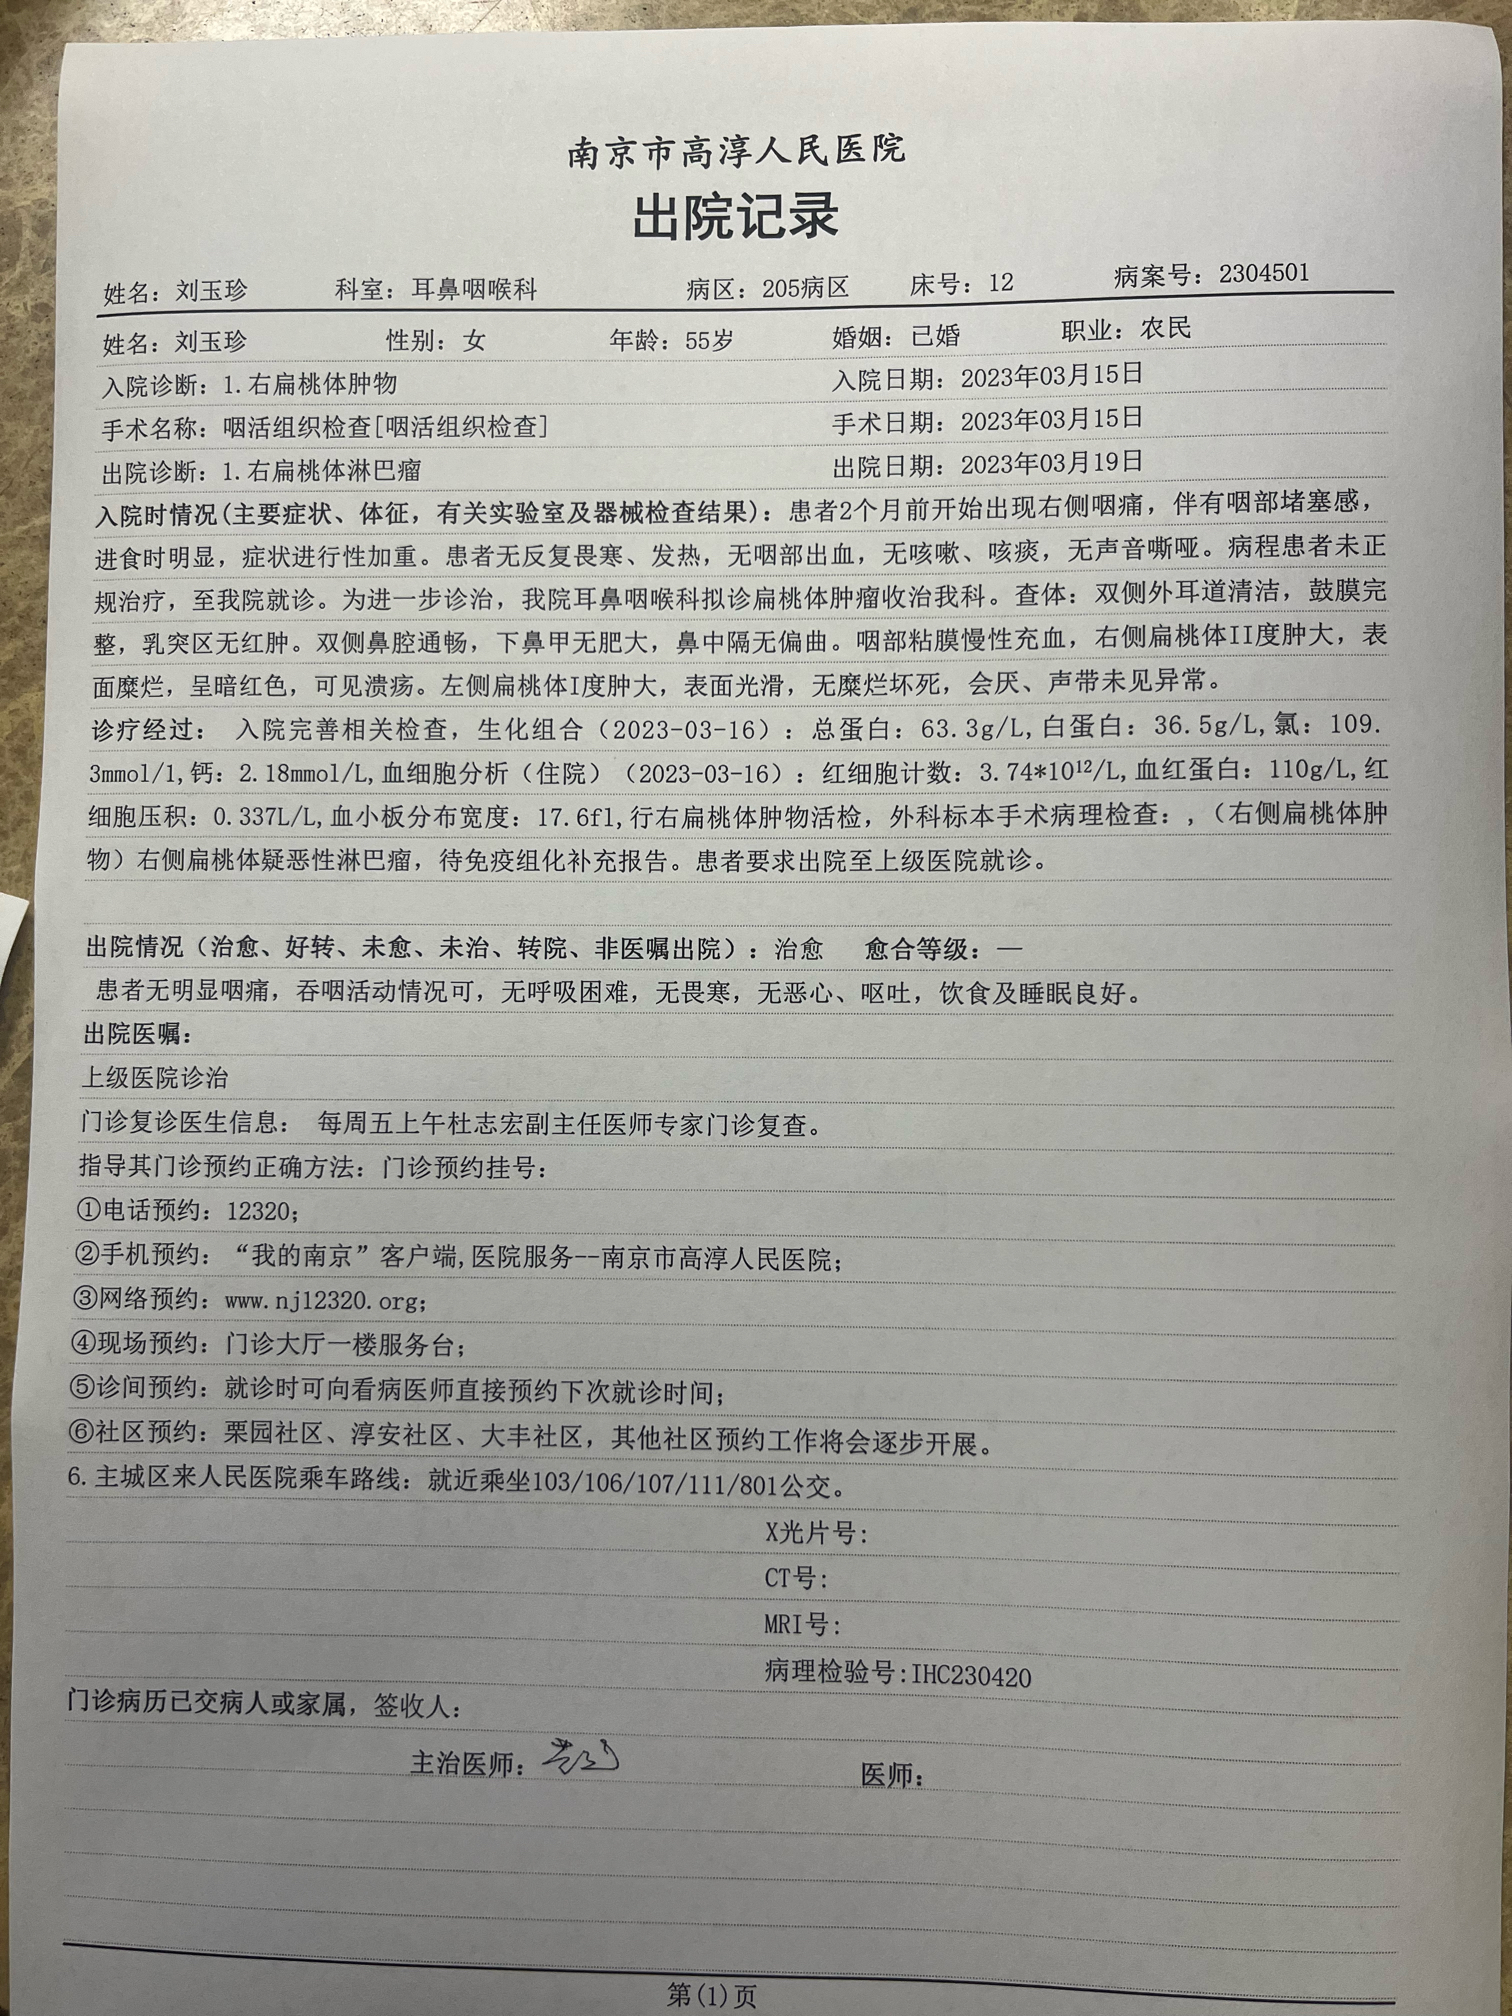 南京市高淳人民医院
出院记录
姓名：刘玉珍 科室：耳鼻咽喉科 病区：205病区 床号：12 病案号：2304501
姓名：刘玉珍 性别：女 年龄：55岁 婚姻：已婚 职业：农民
入院诊断：1.右扁桃体肿物 入院日期：2023年03月15日
手术名称：咽活组织检查[咽活组织检查] 手术日期：2023年03月15日
出院诊断：1.右扁桃体淋巴瘤 出院日期：2023年03月19日
入院时情况(主要症状、体征，有关实验室及器械检查结果)：患者2个月前开始出现右侧咽痛，伴有咽部堵塞感，
进食时明显，症状进行性加重。患者无反复畏寒、发热，无咽部出血，无咳嗽、咳痰，无声音嘶哑。病程患者未正
规治疗，至我院就诊。为进一步诊治，我院耳鼻咽喉科拟诊扁桃体肿瘤收治我科。查体：双侧外耳道清洁，鼓膜完
整，乳突区无红肿。双侧鼻腔通畅，下鼻甲无肥大，鼻中隔无偏曲。咽部粘膜慢性充血，右侧扁桃体II度肿大，表
面糜烂，呈暗红色，可见溃疡。左侧扁桃体I度肿大，表面光滑，无糜烂坏死，会厌、声带未见异常。
诊疗经过： 入院完善相关检查，生化组合（2023-03-16）：总蛋白：63.3g/L,白蛋白：36.5g/L,氯：109.
3mmol/l,钙：2.18mmol/L,血细胞分析（住院）（2023-03-16）：红细胞计数：3.74*10¹²/L,血红蛋白：110g/L,红
细胞压积：0.337L/L,血小板分布宽度：17.6fl,行右扁桃体肿物活检，外科标本手术病理检查：,（右侧扁桃体肿
物）右侧扁桃体疑恶性淋巴瘤，待免疫组化补充报告。患者要求出院至上级医院就诊。
出院情况（治愈、好转、未愈、未治、转院、非医嘱出院）：治愈 愈合等级：—
患者无明显咽痛，吞咽活动情况可，无呼吸困难，无畏寒，无恶心、呕吐，饮食及睡眠良好。
出院医嘱：
上级医院诊治
门诊复诊医生信息： 每周五上午杜志宏副主任医师专家门诊复查。
指导其门诊预约正确方法：门诊预约挂号：
①电话预约：12320；
②手机预约：“我的南京”客户端,医院服务--南京市高淳人民医院；
③网络预约：www.nj12320.org；
④现场预约：门诊大厅一楼服务台；
⑤诊间预约：就诊时可向看病医师直接预约下次就诊时间；
⑥社区预约：栗园社区、淳安社区、大丰社区，其他社区预约工作将会逐步开展。
6.主城区来人民医院乘车路线：就近乘坐103/106/107/111/801公交。
X光片号：
CT号：
MRI号：
病理检验号:IHC230420
门诊病历已交病人或家属，签收人：
主治医师： 医师：
第(1)页